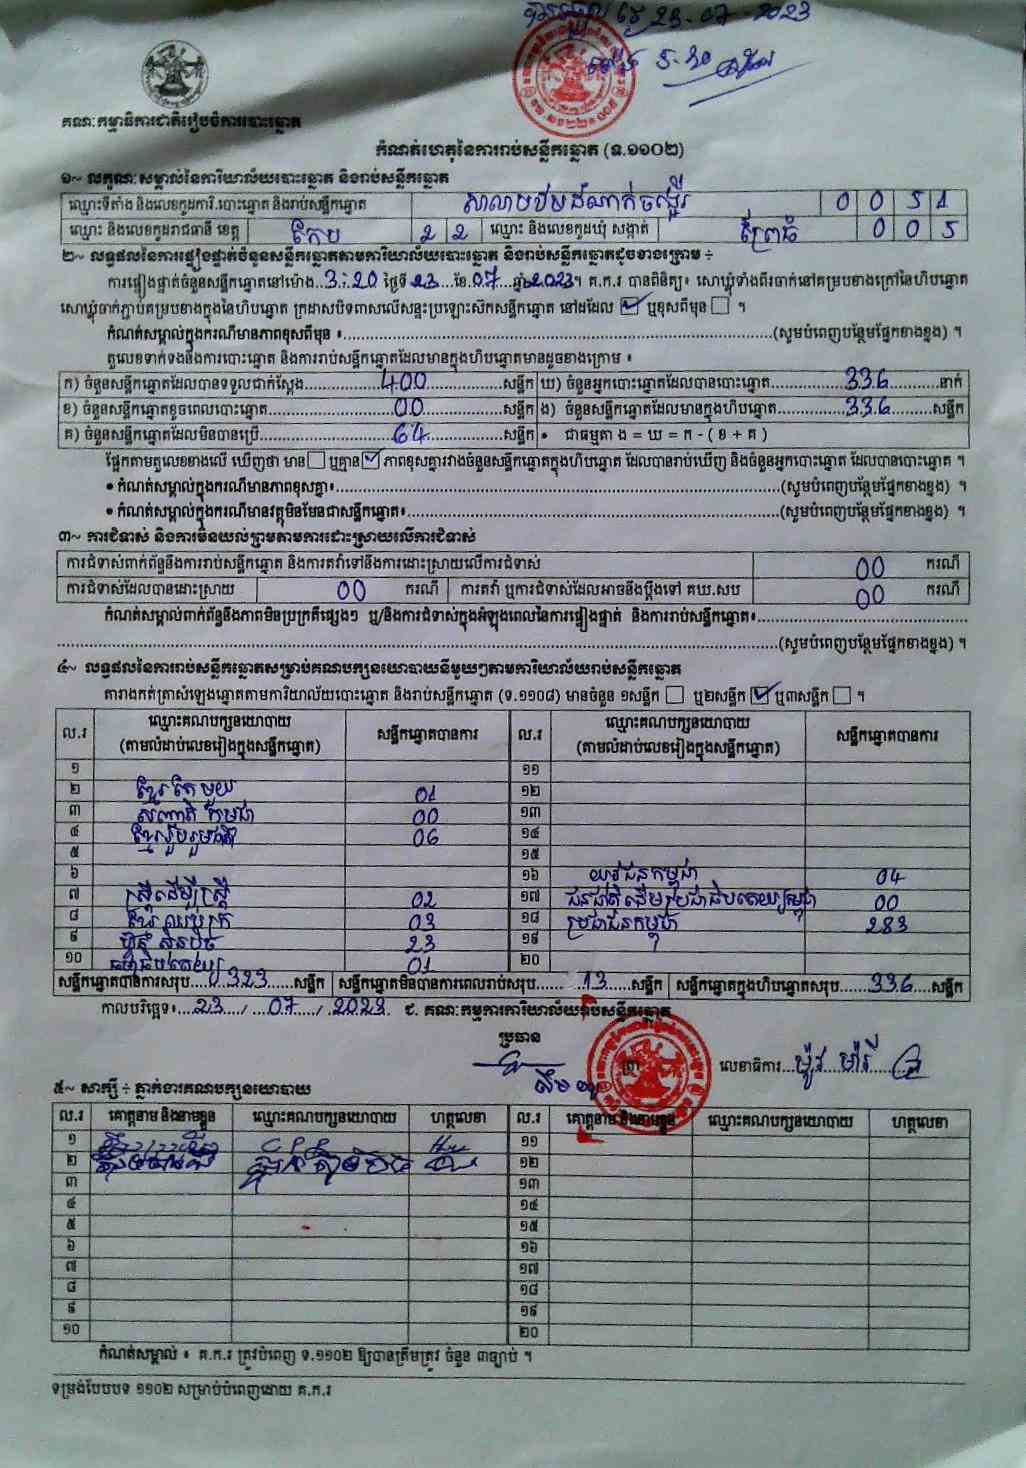 23-07-2023
គណៈកម្មាធិការជាតិរៀបចំការបោះឆ្នោត
កំណត់ហេតុនៃការរាប់សន្លឹកឆ្នោត (ទ.១១០២)
១~ លក្ខណៈសម្គាល់នៃការិយាល័យបោះឆ្នោត និងរាប់សន្លឹកឆ្នោត
ឈ្មោះទីតាំង និងលេខកូដការិ.បោះឆ្នោត និងរាប់សន្លឹកឆ្នោត 0 0 5 1
ឈ្មោះ និងលេខកូដរាជធានី ខេត្ត កែប 2 2 ឈ្មោះ និងលេខកូដឃុំ សង្កាត់ ព្រៃធំ 0 0 5
២~ លទ្ធផលនៃការផ្ទៀងផ្ទាត់ចំនួនសន្លឹកឆ្នោតតាមការិយាល័យបោះឆ្នោត និងរាប់សន្លឹកឆ្នោតដូចខាងក្រោម ÷
ការផ្ទៀងផ្ទាត់ចំនួនសន្លឹកឆ្នោតនៅម៉ោង..3:20 ថ្ងៃទី 23...ខែ.07...ឆ្នាំ 2023។ គ.ក.រ បានពិនិត្យ៖ សោឃ្លុំទាំងពីរចាក់នៅគម្របខាងក្រៅនៃហិបឆ្នោត
សោឃ្លុំចាក់ភ្ជាប់គម្របខាងក្នុងនៃហិបឆ្នោត ក្រដាសបិទពាសលើសន្ទះប្រឡោះស៊កសន្លឹកឆ្នោត នៅដដែល ☑ ឬខុសពីមុន ☐ ។
កំណត់សម្គាល់ក្នុងករណីមានភាពខុសពីមុន ៖..........(សូមបំពេញបន្ថែមផ្នែកខាងខ្នង) ។
តួលេខទាក់ទងនឹងការបោះឆ្នោត និងការរាប់សន្លឹកឆ្នោតដែលមានក្នុងហិបឆ្នោតមានដូចខាងក្រោម ៖
ក) ចំនួនសន្លឹកឆ្នោតដែលបានទទួលជាក់ស្តែង.....400.....សន្លឹក ឃ) ចំនួនអ្នកបោះឆ្នោតដែលបានបោះឆ្នោត.....336.....នាក់
ខ) ចំនួនសន្លឹកឆ្នោតខូចពេលបោះឆ្នោត.....00.....សន្លឹក ង) ចំនួនសន្លឹកឆ្នោតដែលមានក្នុងហិបឆ្នោត.....336.....សន្លឹក
គ) ចំនួនសន្លឹកឆ្នោតដែលមិនបានប្រើ.....64.....សន្លឹក • ជាធម្មតា ង = ឃ = ក - ( ខ + គ )
ផ្អែកតាមតួលេខខាងលើ ឃើញថា មាន ☐ ឬគ្មាន ☑ ភាពខុសគ្នារវាងចំនួនសន្លឹកឆ្នោតក្នុងហិបឆ្នោត ដែលបានរាប់ឃើញ និងចំនួនអ្នកបោះឆ្នោត ដែលបានបោះឆ្នោត ។
• កំណត់សម្គាល់ក្នុងករណីមានភាពខុសគ្នា៖..........(សូមបំពេញបន្ថែមផ្នែកខាងខ្នង) ។
• កំណត់សម្គាល់ក្នុងករណីមានវត្ថុមិនមែនជាសន្លឹកឆ្នោត៖..........(សូមបំពេញបន្ថែមផ្នែកខាងខ្នង) ។
៣~ ការជំទាស់ និងការមិនយល់ព្រមតាមការដោះស្រាយលើការជំទាស់
ការជំទាស់ពាក់ព័ន្ធនឹងការរាប់សន្លឹកឆ្នោត និងការតវ៉ាទៅនឹងការដោះស្រាយលើការជំទាស់ 00 ករណី
ការជំទាស់ដែលបានដោះស្រាយ 00 ករណី ការតវ៉ា ឬការជំទាស់ដែលអាចនឹងប្តឹងទៅ គឃ.សប 00 ករណី
កំណត់សម្គាល់ពាក់ព័ន្ធនឹងភាពមិនប្រក្រតីផ្សេងៗ ឬ/និងការជំទាស់ក្នុងអំឡុងពេលនៃការផ្ទៀងផ្ទាត់ និងការរាប់សន្លឹកឆ្នោត៖..........
..........(សូមបំពេញបន្ថែមផ្នែកខាងខ្នង) ។
៤~ លទ្ធផលនៃការរាប់សន្លឹកឆ្នោតសម្រាប់គណបក្សនយោបាយនីមួយៗតាមការិយាល័យរាប់សន្លឹកឆ្នោត
តារាងកត់ត្រាសំឡេងឆ្នោតតាមការិយាល័យបោះឆ្នោត និងរាប់សន្លឹកឆ្នោត (ទ.១១០៨) មានចំនួន ១សន្លឹក ☐ ឬ២សន្លឹក ☑ ឬ៣សន្លឹក ☐ ។
ល.រ ឈ្មោះគណបក្សនយោបាយ (តាមលំដាប់លេខរៀងក្នុងសន្លឹកឆ្នោត) សន្លឹកឆ្នោតបានការ ល.រ ឈ្មោះគណបក្សនយោបាយ (តាមលំដាប់លេខរៀងក្នុងសន្លឹកឆ្នោត) សន្លឹកឆ្នោតបានការ
១ ១១
២ ខ្មែរតែមួយ 01 ១២
៣ សញ្ជាតិកម្ពុជា 00 ១៣
៤ ខ្មែររួបរួមជាតិ 06 ១៤
៥ ១៥
៦ ១៦ យុវជនកម្ពុជា 04
៧ ស្ត្រីដើម្បីស្ត្រី 02 ១៧ ជនជាតិដើមប្រជាធិបតេយ្យកម្ពុជា 00
៨ ខ្មែរឈប់ក្រ 03 ១៨ ប្រជាជនកម្ពុជា 283
៩ ហ៊្វុនស៊ិនប៉ិច 23 ១៩
១០ ធម្មាធិបតេយ្យ 01 ២០
សន្លឹកឆ្នោតបានការសរុប.....323.....សន្លឹក សន្លឹកឆ្នោតមិនបានការពេលរាប់សរុប.....13.....សន្លឹក សន្លឹកឆ្នោតក្នុងហិបឆ្នោតសរុប.....336.....សន្លឹក
កាលបរិច្ឆេទ៖...23.../...07.../.2023. ជ. គណៈកម្មការការិយាល័យរាប់សន្លឹកឆ្នោត
ប្រធាន
លេខាធិការ... ម៉ូវ ម៉ារី
៥~ សាក្សី ÷ ភ្នាក់ងារគណបក្សនយោបាយ
ល.រ គោត្តនាម និងនាមខ្លួន ឈ្មោះគណបក្សនយោបាយ ហត្ថលេខា ល.រ គោត្តនាម និងនាមខ្លួន ឈ្មោះគណបក្សនយោបាយ ហត្ថលេខា
១ CPP ១១
២ ហ៊្វុនស៊ិនប៉ិច ១២
៣ ១៣
៤ ១៤
៥ ១៥
៦ ១៦
៧ ១៧
៨ ១៨
៩ ១៩
១០ ២០
កំណត់សម្គាល់ ៖ គ.ក.រ ត្រូវបំពេញ ទ.១១០២ ឱ្យបានត្រឹមត្រូវ ចំនួន ៣ច្បាប់ ។
ទម្រង់បែបបទ ១១០២ សម្រាប់បំពេញដោយ គ.ក.រ